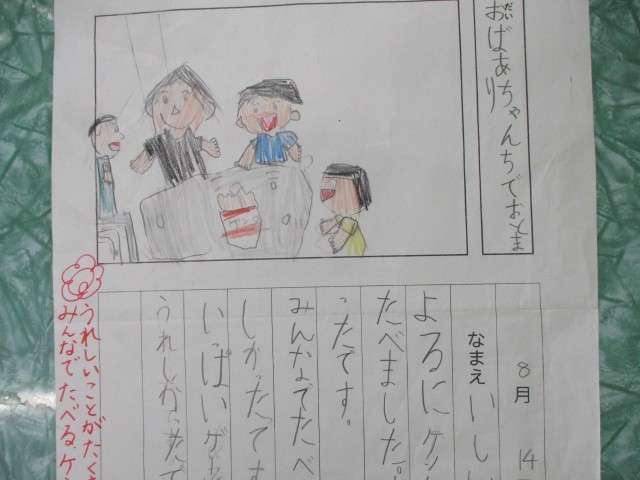 だい
おばあちゃんちでおとまり
8月 14
なまえ いし
よるにケン
たべました。
ったです。
みんなでたべ
しかったです
いっぱいゲ
うれしかったで
うれしいことがたくさ
みんなでたべる、ケン